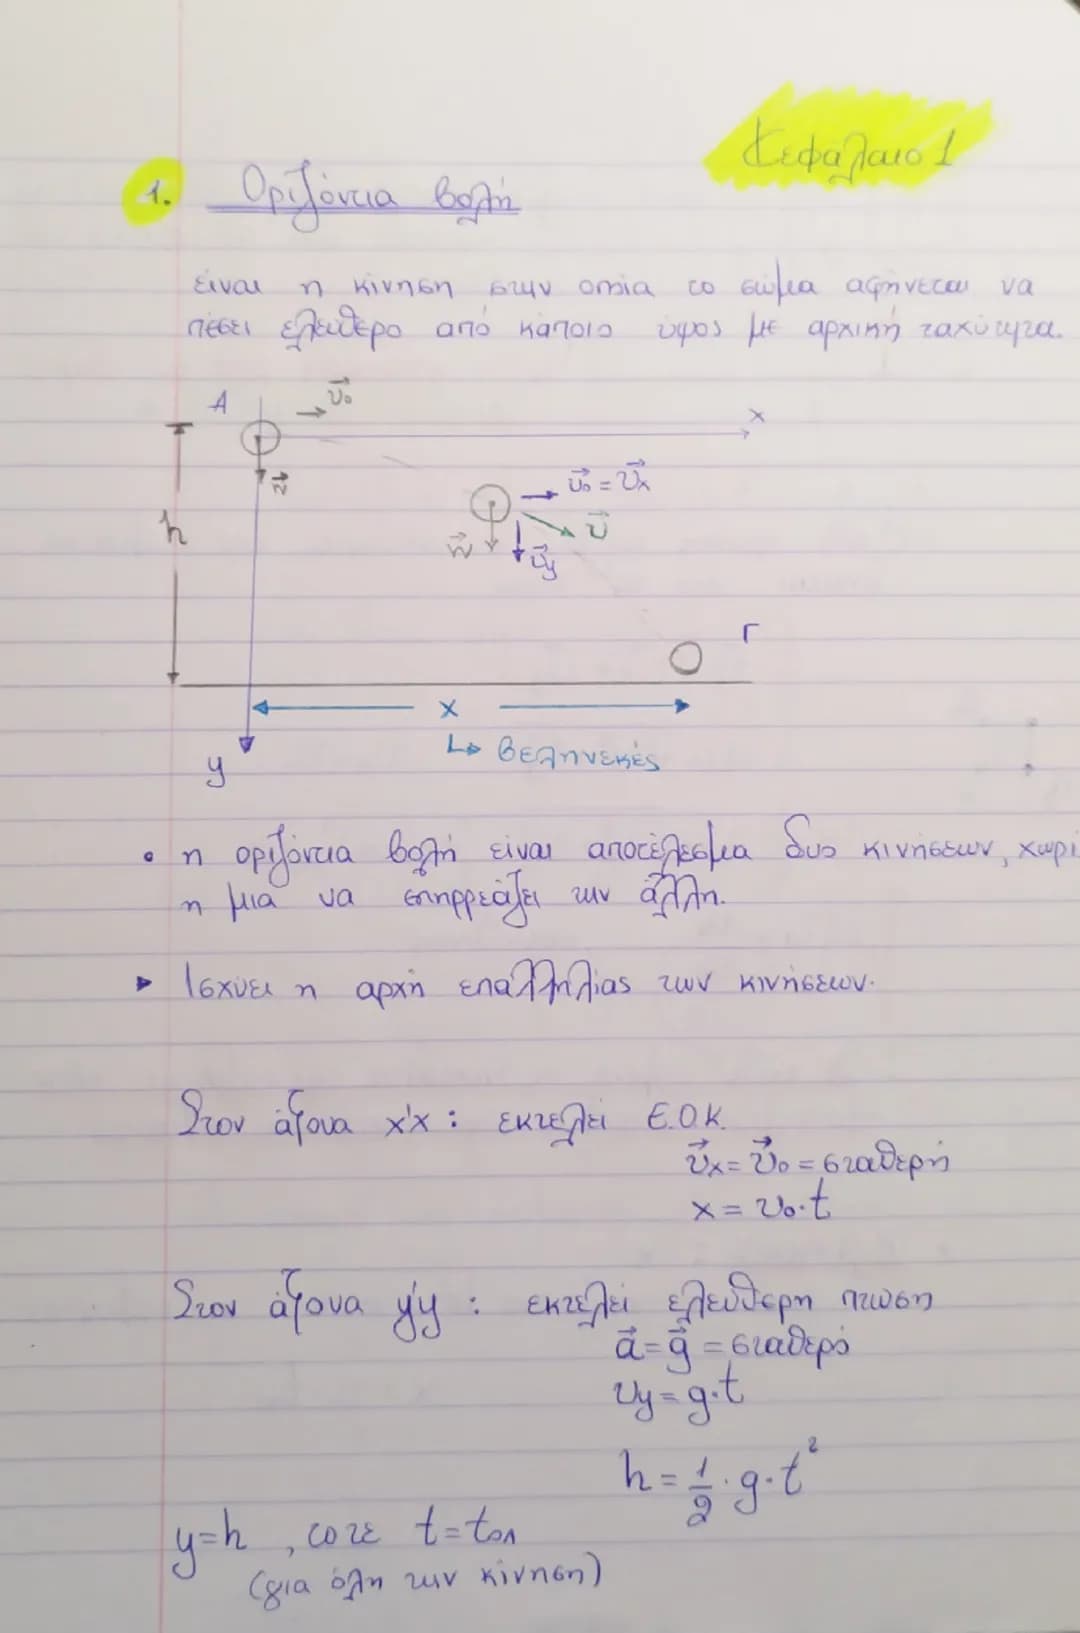 Κεφάλαιο 1
1. Οριζόντια βολή
είναι η κίνηση στην οποία το σώμα αφήνεται να
πέσει ελεύθερο από κάποιο ύψος με αρχική ταχύτητα.
A
v⃗₀
x
w⃗
h
v⃗₀ = v⃗x
v⃗
w⃗
v⃗y
Γ
x
↳ βεληνεκές
y
• η οριζόντια βολή είναι αποτέλεσμα δυο κινήσεων, χωρί
η μια να επηρρεάζει την άλλη.
▸ Ισχύει η αρχή επαλληλίας των κινήσεων.
Στον άξονα x'x : εκτελεί Ε.Ο.Κ.
v⃗x = v⃗₀ = σταθερή
x = v₀·t
Στον άξονα y'y : εκτελεί ελεύθερη πτώση
a⃗ = g⃗ = σταθερό
vy = g·t
h = 1/2 · g · t²
y = h , τότε t = tολ
(για όλη την κίνηση)